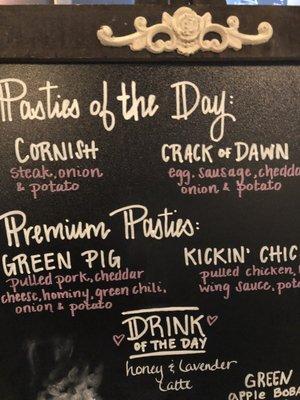 Pasties of the Day:
CORNISH
steak, onion
& potato
CRACK OF DAWN
egg, sausage, chedda
onion & potato
Premium Pasties:
GREEN PIG
pulled pork, cheddar
cheese, hominy, green chili,
onion & potato
KICKIN' CHIC
pulled chicken,
wing sauce, pot
DRINK
OF THE DAY
honey & lavender
latte
GREEN
apple BOBA